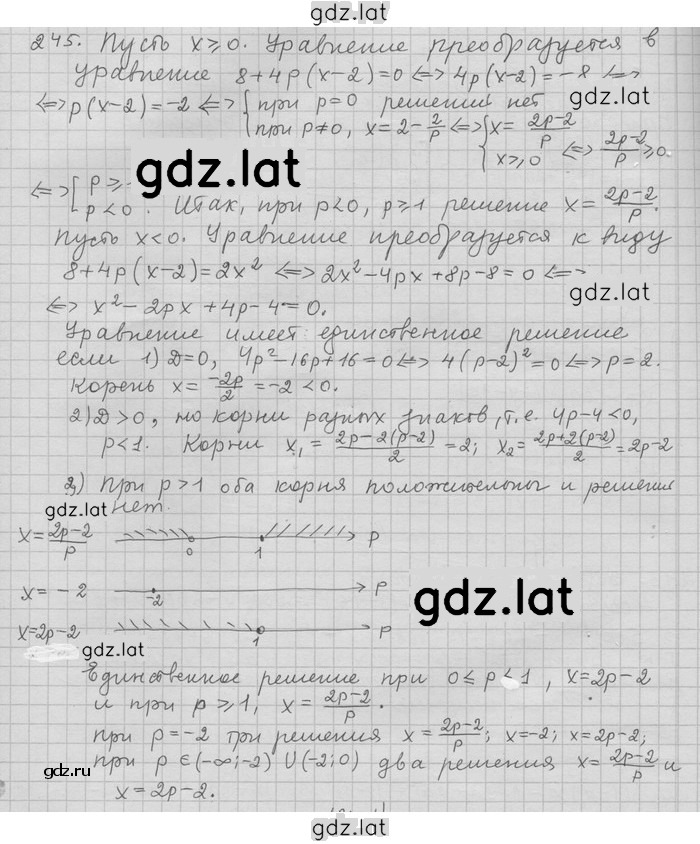 gdz.lat
245. Пусть x ≥ 0. Уравнение преобразуется в
уравнение 8+4p(x-2)=0 <=> 4p(x-2)=-8 <=>
gdz.lat
<=> p(x-2)=-2 <=> { при p=0 решений нет
при p≠0, x=2-2/p <=> { x=(2p-2)/p
x≥0 <=> (2p-2)/p ≥0.
gdz.lat
<=> [ p ≥
p < 0 . Итак, при p<0, p≥1 решение x = (2p-2)/p.
Пусть x<0. Уравнение преобразуется к виду
8+4p(x-2)=2x² <=> 2x²-4px+8p-8=0 <=>
gdz.lat
<=> x²-2px+4p-4=0.
Уравнение имеет единственное решение
если 1) D=0, 4p²-16p+16=0 <=> 4(p-2)²=0 <=> p=2.
Корень x = -2p/2 = -2 <0.
2) D>0, но корни разных знаков, т.е. 4p-4<0,
p<1. Корни x₁ = (2p-2(p-2))/2 = 2; x₂ = (2p+2(p-2))/2 = 2p-2
3) При p>1 оба корня положительны и решения
gdz.lat
нет.
x=(2p-2)/p 0 1 p
x=-2 -2 p
gdz.lat
x=2p-2 1 p
gdz.lat
Единственное решение при 0≤p<1, x=2p-2
и при p≥1, x=(2p-2)/p.
при p=-2 три решения x=(2p-2)/p; x=-2; x=2p-2;
gdz.ru
при p∈(-∞;-2)∪(-2;0) два решения x=(2p-2)/p и
x=2p-2.
gdz.lat